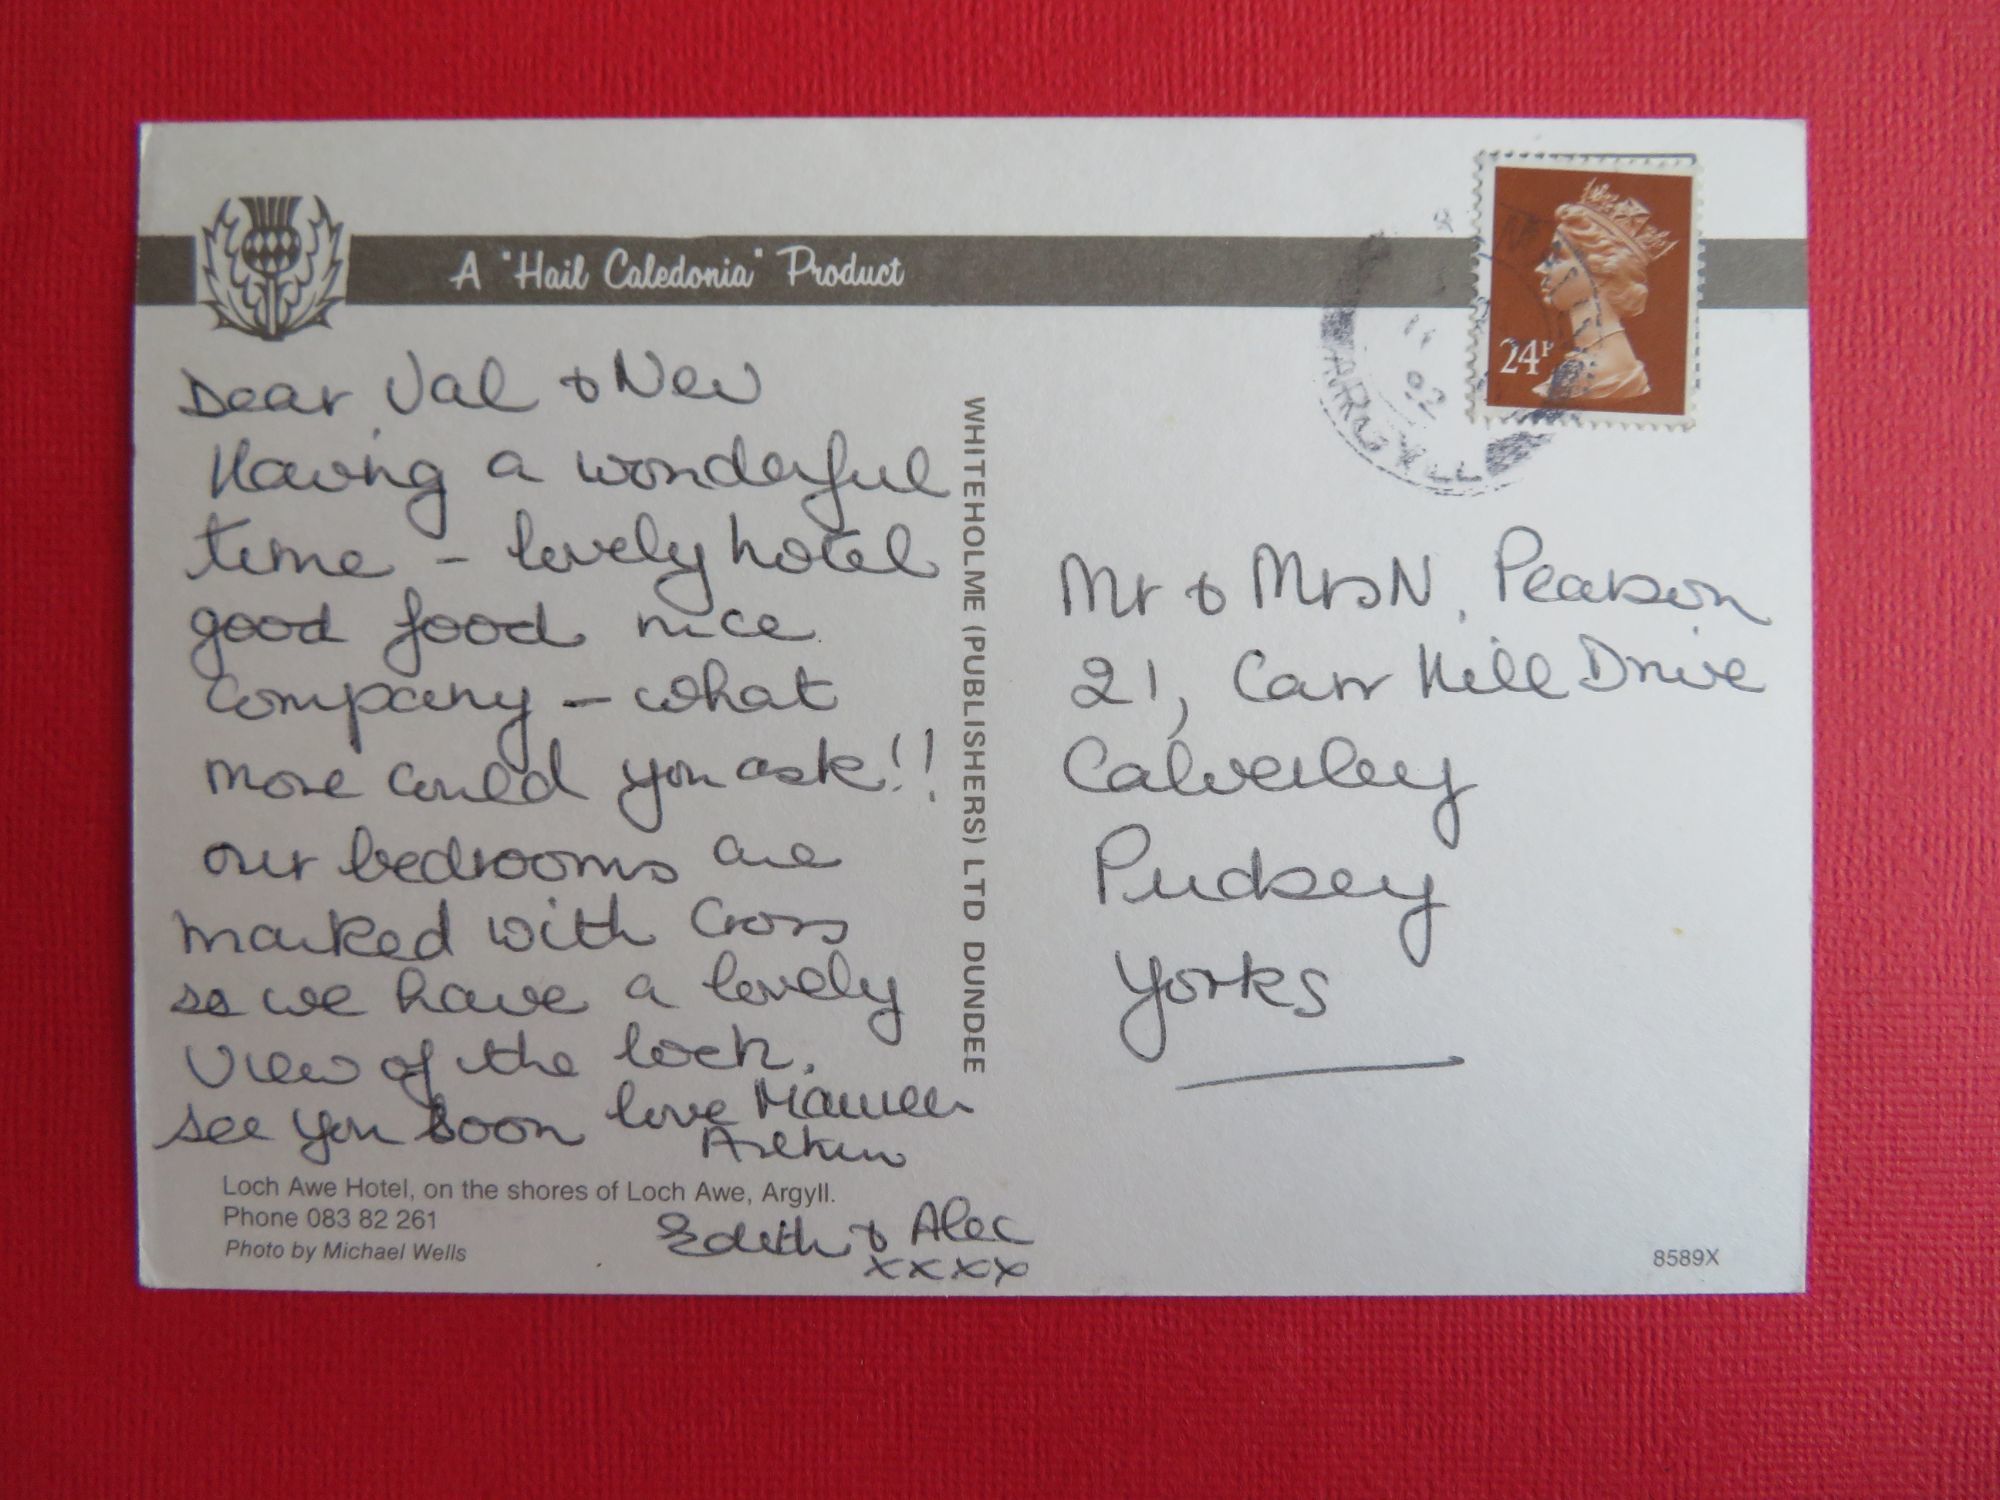 A "Hail Caledonia" Product
Dear Val & Nev
Having a wonderful
time - lovely hotel
good food nice
company - what
more could you ask!!
our bedrooms are
marked with cross
so we have a lovely
view of the loch.
see you soon love Maureen
Edith & Alec
xxxx
Loch Awe Hotel, on the shores of Loch Awe, Argyll.
Phone 083 82 261
Photo by Michael Wells
WHITEHOLME (PUBLISHERS) LTD DUNDEE
24P
ARGYLL
Mr & Mrs N. Pearson
21, Carr Hill Drive
Calverley
Pudsey
Yorks
8589X